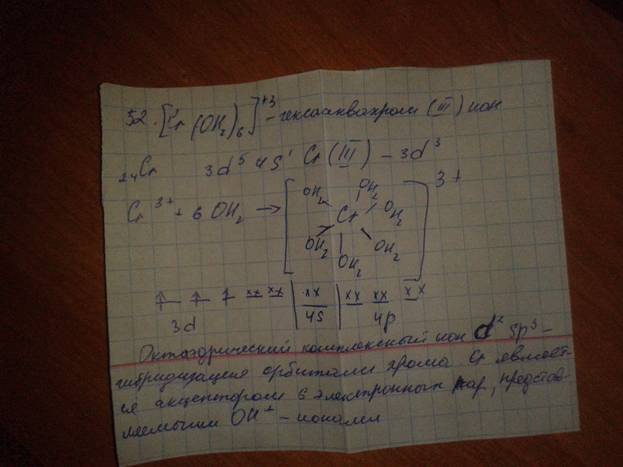 52. [Cr(OH₂)₆]⁺³ - гексааквахром (III) ион
₂₄Cr 3d⁵ 4S¹ Cr (III) – 3d³
Cr³⁺ + 6 OH₂ → [Cr OH₂ OH₂ OH₂ OH₂ OH₂ OH₂]³⁺
↑ ↑ ↑ xx xx | xx | xx xx xx
3d 4S 4p
Октаэдрический комплексный ион d² Sp³ –
гибридизация орбитали хрома Cr являет-
ся акцептором 6 электронных пар, предстов-
ляемыми OH⁺ – ионами